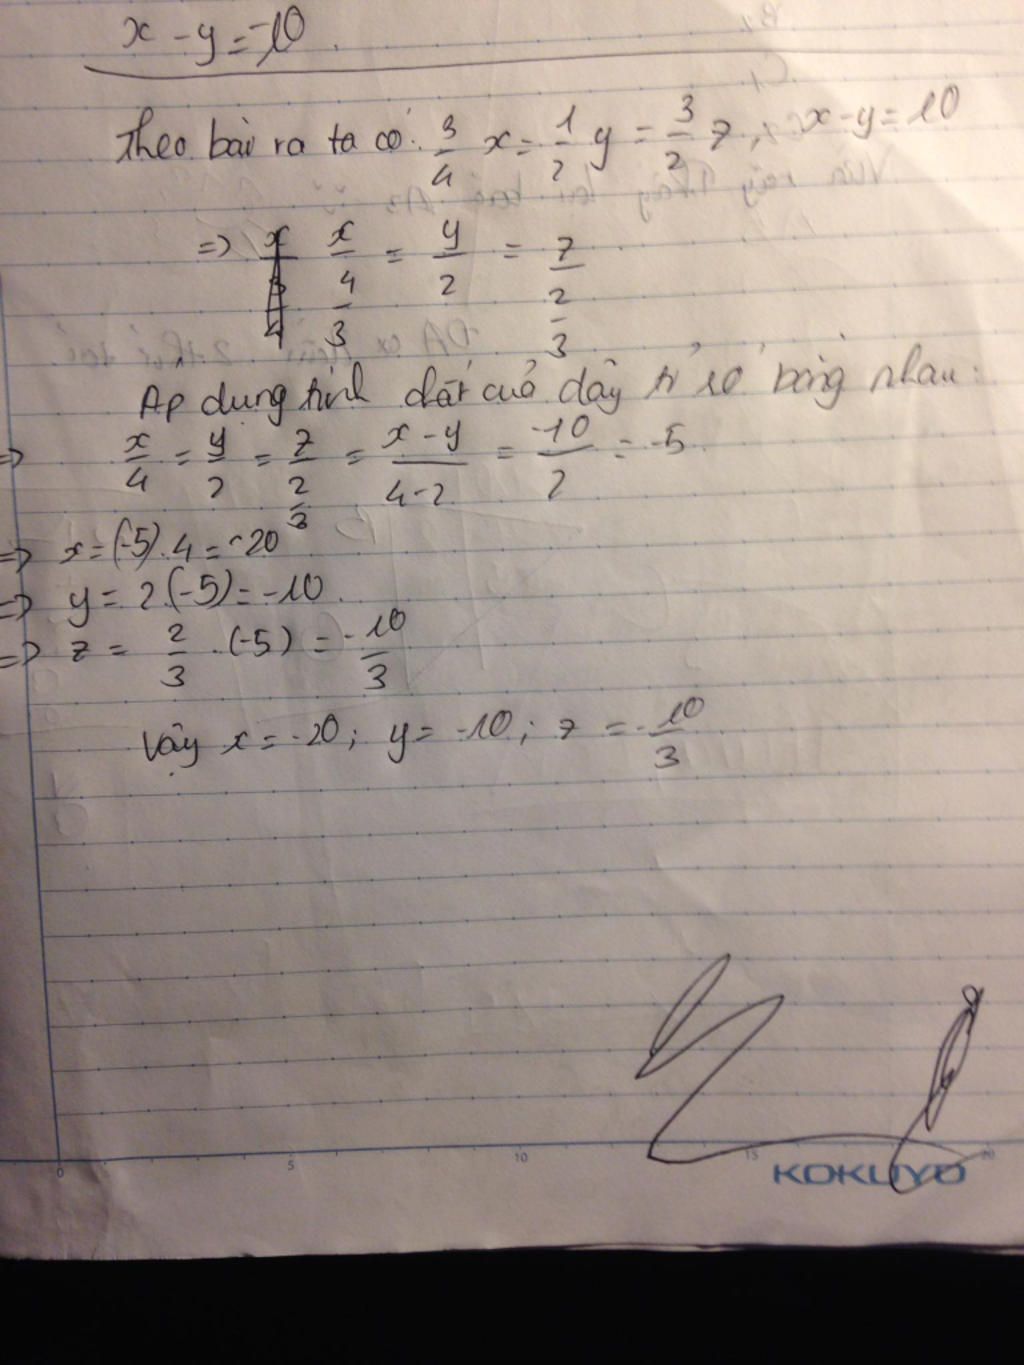 x - y = -10
Theo bài ra ta có: 3/4 x = 1/2 y = 3/2 z ; x - y = 10
=> x/(4/3) = y/2 = z/(2/3)
Áp dụng tính chất của dãy tỉ số bằng nhau:
=> x/4 = y/2 = z/(2/3) = (x - y)/(4 - 2) = -10/2 = -5
=> x = (-5) . 4 = -20
=> y = 2 . (-5) = -10
=> z = 2/3 . (-5) = -10/3
Vậy x = -20; y = -10; z = -10/3
0 5 10 15 20
KOKUYO